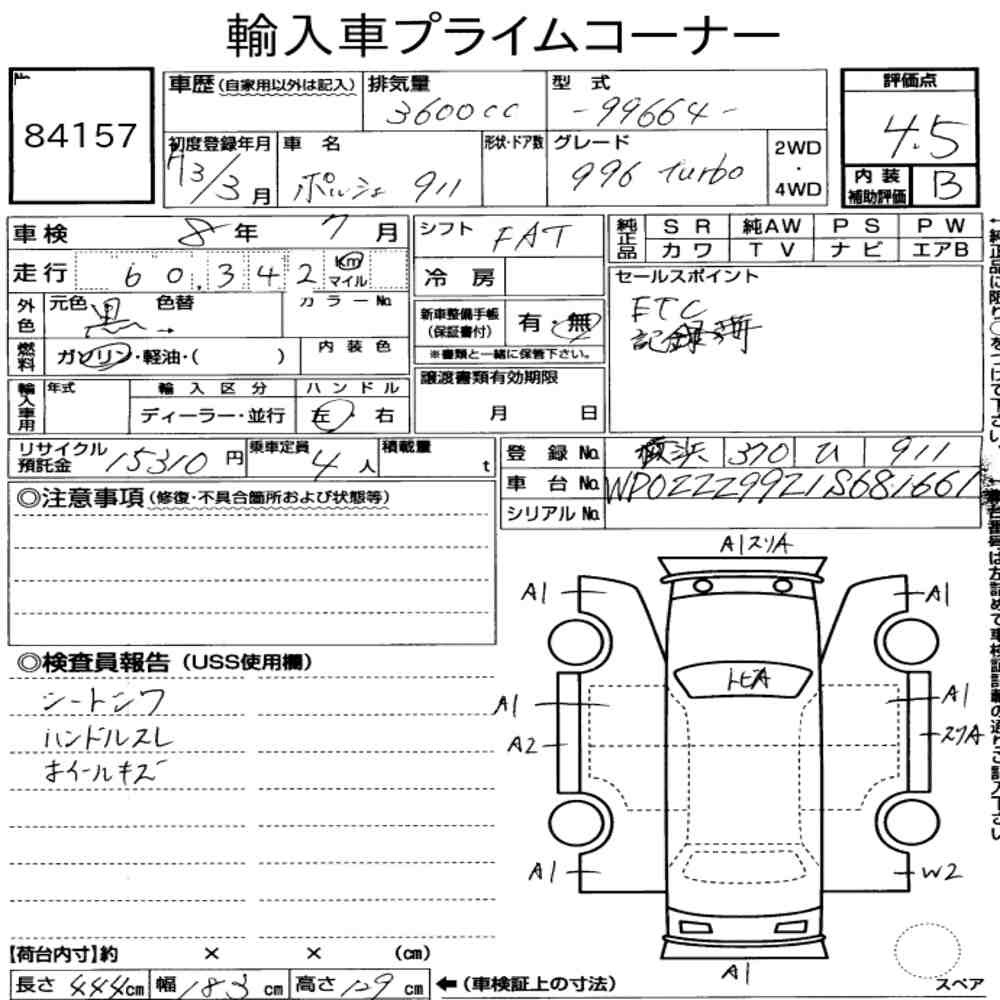 輸入車プライムコーナー
No.
84157
車歴(自家用以外は記入)
排気量
3600cc
型式
-99664-
評価点
4.5
初度登録年月
H13/3月
車名
ポルシェ 911
形状・ドア数
グレード
996 turbo
2WD
・
4WD
内装
補助評価
B
車検 8年 7月
シフト
FAT
純正品
SR 純AW PS PW
カワ TV ナビ エアB
走行 60,342 Km マイル
冷房
セールスポイント
ETC
記録簿
外色
元色 黒→ 色替
カラーNo.
新車整備手帳
(保証書付)
有・無
※書類と一緒に保管下さい。
燃料
ガソリン・軽油・( )
内装色
譲渡書類有効期限
月 日
輸入車用
年式
輸入区分
ディーラー・並行
ハンドル
左・右
リサイクル
預託金
15310円
乗車定員
4人
積載量
t
登録No. 横浜 370 ひ 911
車台No. WP0ZZZ99Z1S681661
シリアルNo.
◎注意事項(修復・不具合箇所および状態等)
◎検査員報告(USS使用欄)
シートシワ
ハンドルスレ
ホイールキズ
A1スリA
A1
A1
トビA
A1
A1
A2
スリA
A1
W2
A1
スペア
【荷台内寸】約 × × (cm)
長さ 444cm 幅 183cm 高さ 129cm ←(車検証上の寸法)